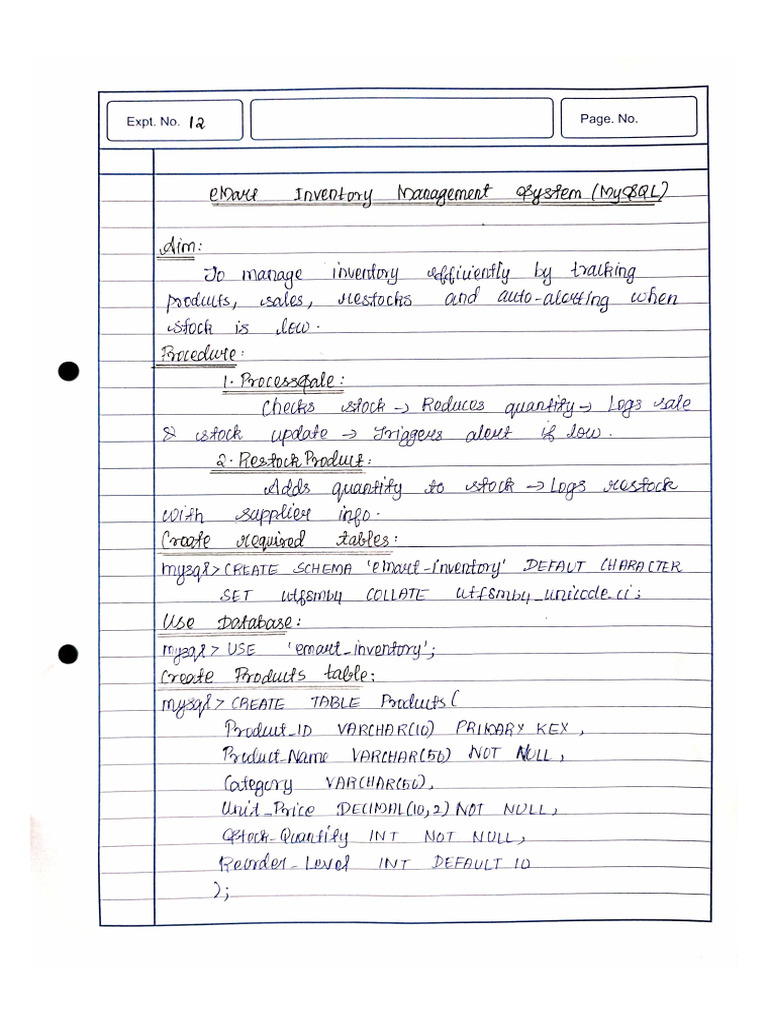 Expt. No. 12
Page. No.
eMart Inventory Management System (MySQL)
Aim:
To manage inventory efficiently by tracking
products, sales, restocks and auto-alerting when
stock is low.
Procedure:
1. ProcessSale:
Checks stock → Reduces quantity → Logs sale
& stock update → Triggers alert if low.
2. RestockProduct:
Adds quantity to stock → Logs restock
with supplier info.
Create required tables:
mysql> CREATE SCHEMA 'emart-inventory' DEFAUT CHARACTER
SET utf8mb4 COLLATE utf8mb4_unicode_ci;
Use Database:
mysql> USE 'emart_inventory';
Create Products table:
mysql> CREATE TABLE Products(
Product_ID VARCHAR(10) PRIMARY KEY,
Product_Name VARCHAR(50) NOT NULL,
Category VARCHAR(50),
Unit_Price DECIMAL(10,2) NOT NULL,
Stock_Quantity INT NOT NULL,
Reorder_Level INT DEFAULT 10
);